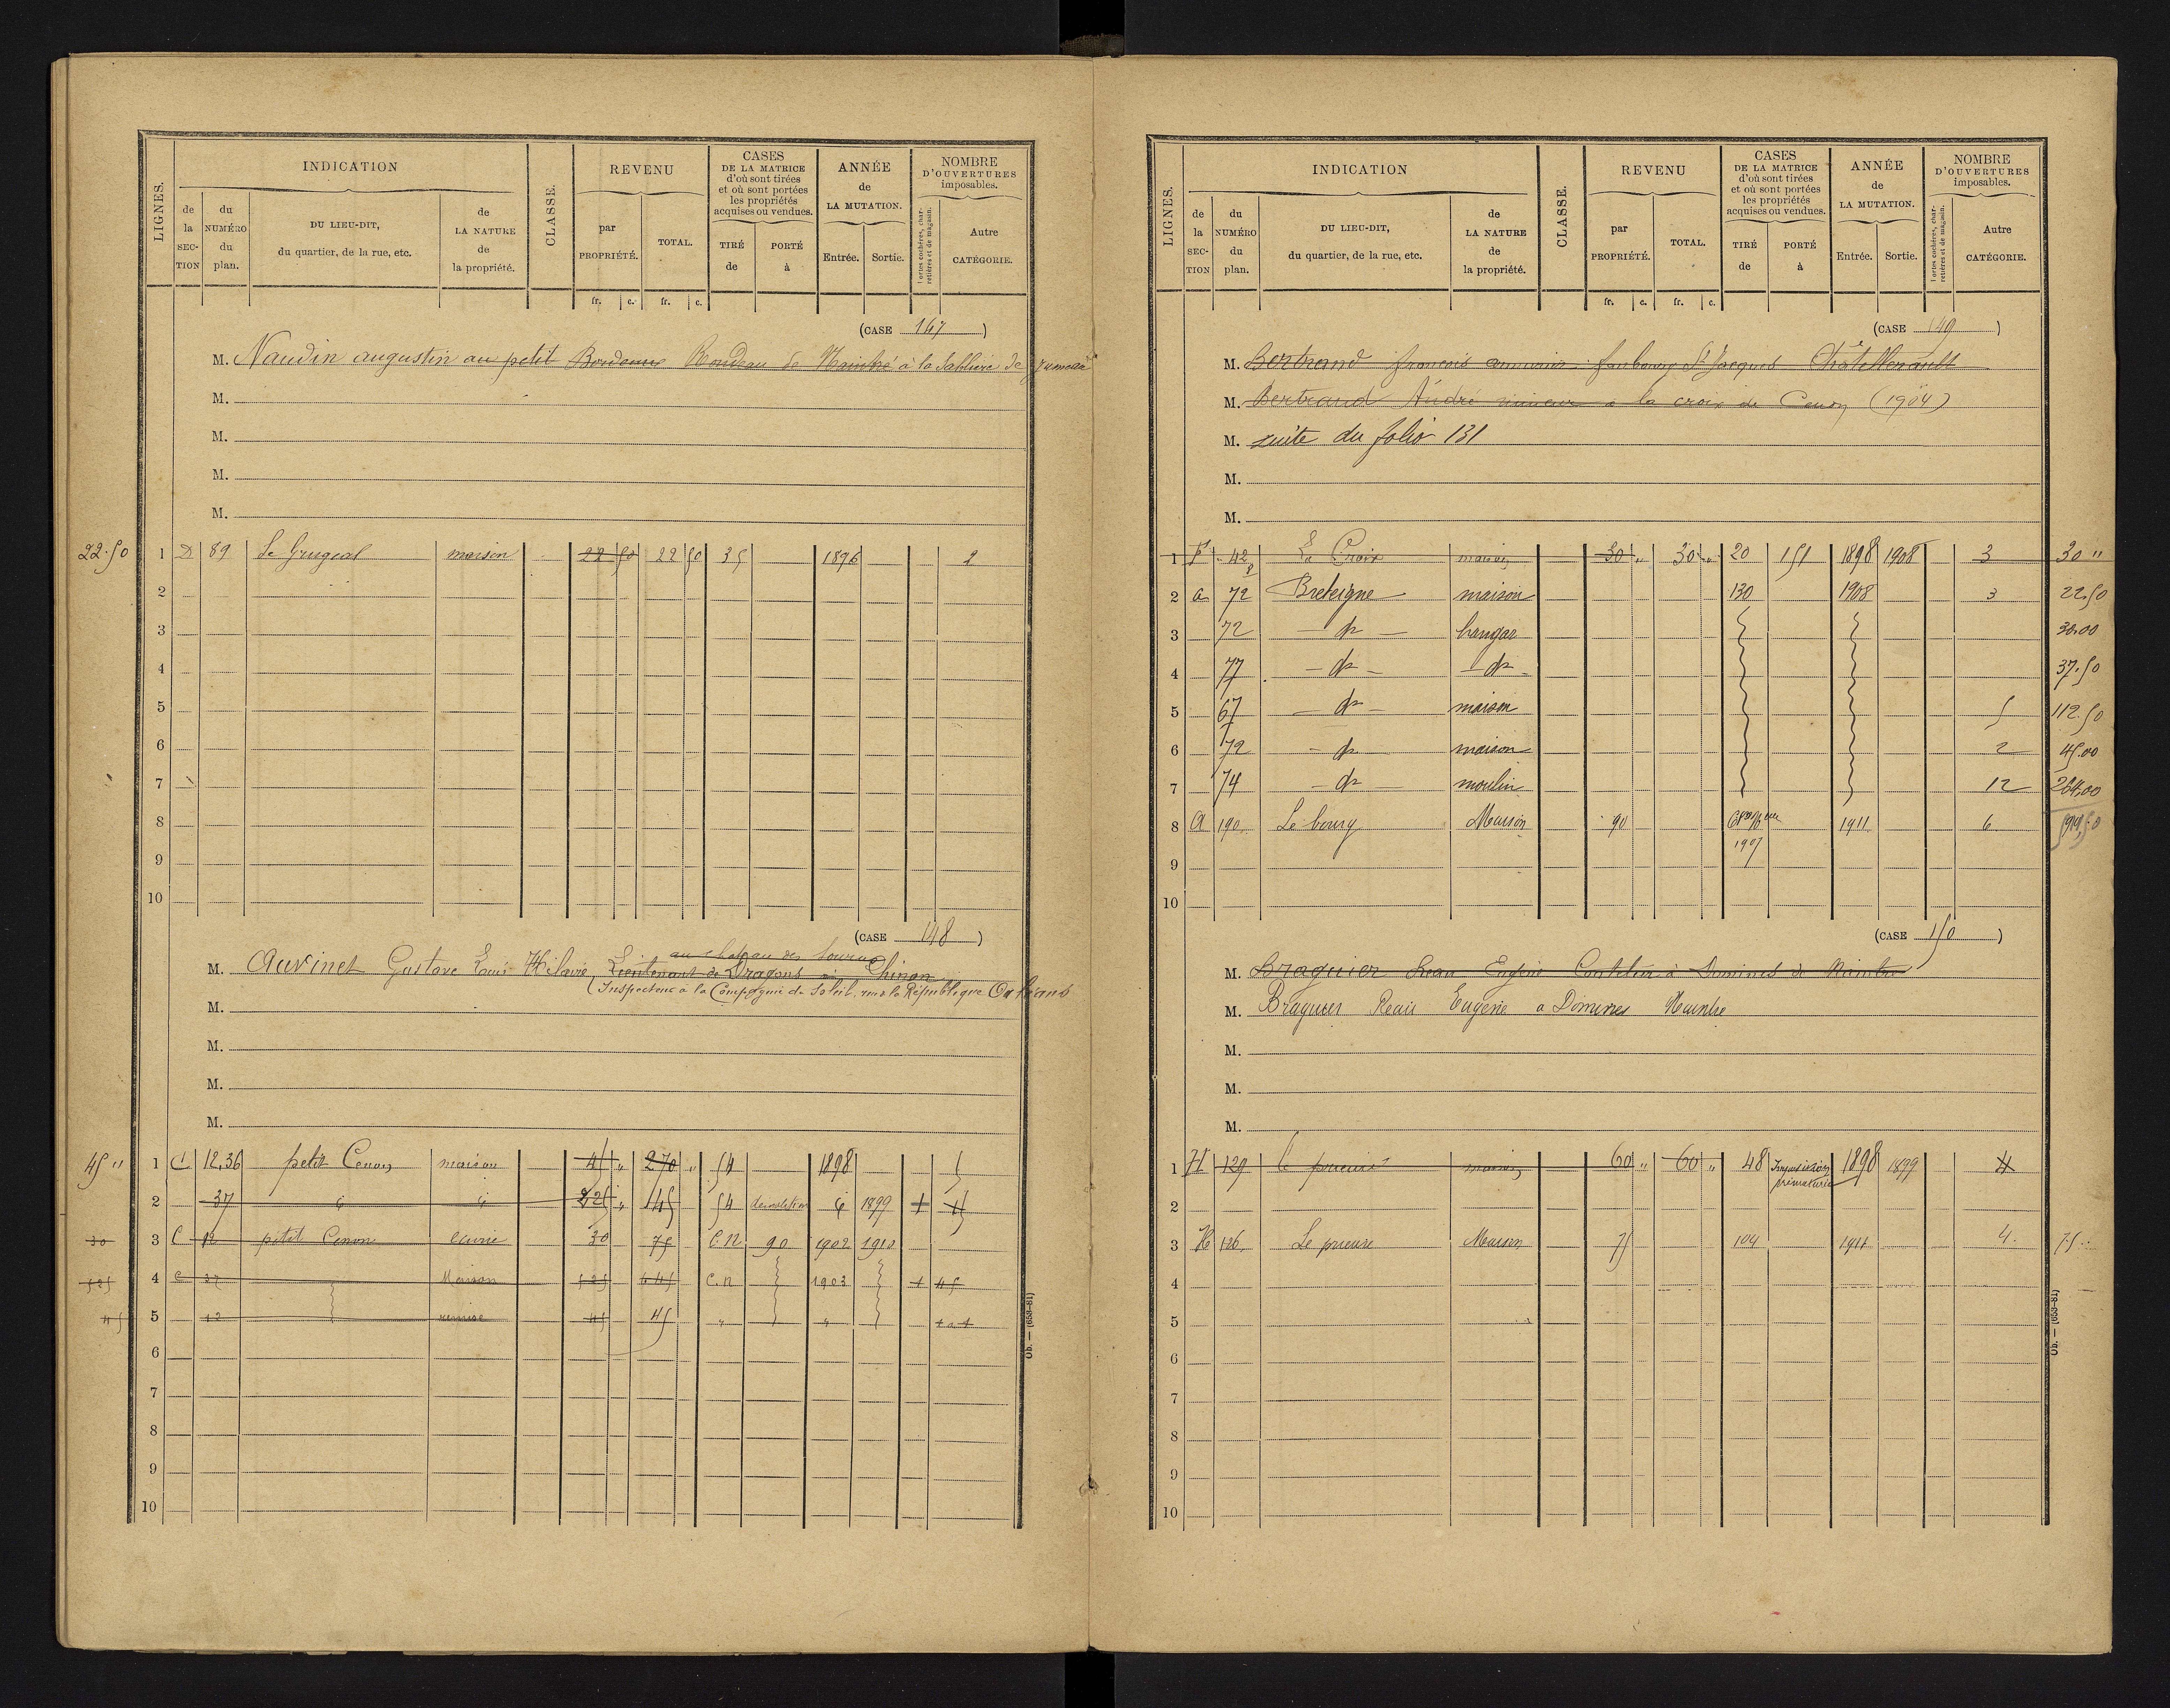 LIGNES. INDICATION CLASSE. REVENU CASES DE LA MATRICE d'où sont tirées et où sont portées les propriétés acquises ou vendues. ANNÉE de LA MUTATION. NOMBRE D'OUVERTURES imposables.
de la SECTION du NUMÉRO du plan. DU LIEU-DIT, du quartier, de la rue, etc. de LA NATURE de la propriété. par PROPRIÉTÉ. TOTAL. TIRÉ de PORTÉ à Entrée. Sortie. Portes cochères, charretières et de magasin. Autre CATÉGORIE.
fr. c. fr. c.
(CASE 147)
M. Naudin augustin au petit à la Sablière de
M.
M.
M.
M.
22.50 1 D 89 maison 22 50 22 50 35 1896 2
2
3
4
5
6
7
8
9
10
(CASE 148)
au chateau des
M. Auvinet Gustave Louis Hilaire, Lieutenant de Dragons Chinon
Inspecteur à la Compagnie du Soleil, rue la République Orléans
M.
M.
M.
M.
45 " 1 C 12.36 petit Cenon maison 45 " 270 " 54 1898 5
2 37 225 " 145 54 demolition 1899 1
30 3 C 12 petit Cenon écurie 30 75 C.N 90 1902 1910
525 4 C 37 Maison 525 645 C.n 1903 1 45
45 5 12 remise 45 45 " "
6
7
8
9
10
Ob. — (653-81)
LIGNES. INDICATION CLASSE. REVENU CASES DE LA MATRICE d'où sont tirées et où sont portées les propriétés acquises ou vendues. ANNÉE de LA MUTATION. NOMBRE D'OUVERTURES imposables.
de la SECTION du NUMÉRO du plan. DU LIEU-DIT, du quartier, de la rue, etc. de LA NATURE de la propriété. par PROPRIÉTÉ. TOTAL. TIRÉ de PORTÉ à Entrée. Sortie. Portes cochères, charretières et de magasin. Autre CATÉGORIE.
fr. c. fr. c.
(CASE 149)
M. Bertrand françois faubourg St Jacques Châtellerault
M. Bertrand André à la croix de Cenon (1904)
M. suite du folio 131
M.
M.
1 F 42 La Croix maison 30 " 30 " 20 151 1898 1908 3 30 "
2 a 72 Breteigne maison 130 1908 3 22.50
3 72 — do — hangar 30.00
4 77 — do — — do — 37.50
5 67 — do — maison 5 112.50
6 72 — do maison 2 45.00
7 74 — do moulin 12 264.00
8 A 190 Le bourg Maison 90 1911 6
9 1907
10
(CASE 150)
M. Braguier Jean Eugène à Domines de Naintré
M. Braguier Eugène a Domines Naintre
M.
M.
M.
1 H 129 le prieuré maison 60 " 60 " 48 Imposition prématurée 1898 1899 4
2
3 H 126 Le prieuré Maison 75 104 1911 4 75
4
5
6
7
8
9
10
Ob. — (653-81)